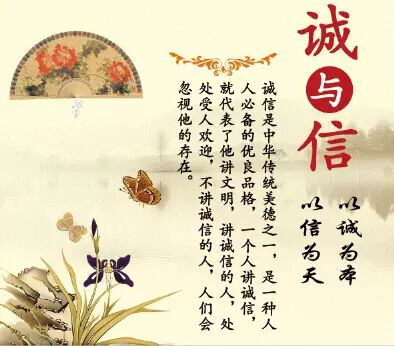 诚与信
以诚为本
以信为天
诚信是中华传统美德之一，是一种人
人必备的优良品格，一个人讲诚信，
就代表了他讲文明，讲诚信的人，处
处受人欢迎，不讲诚信的人，人们会
忽视他的存在。